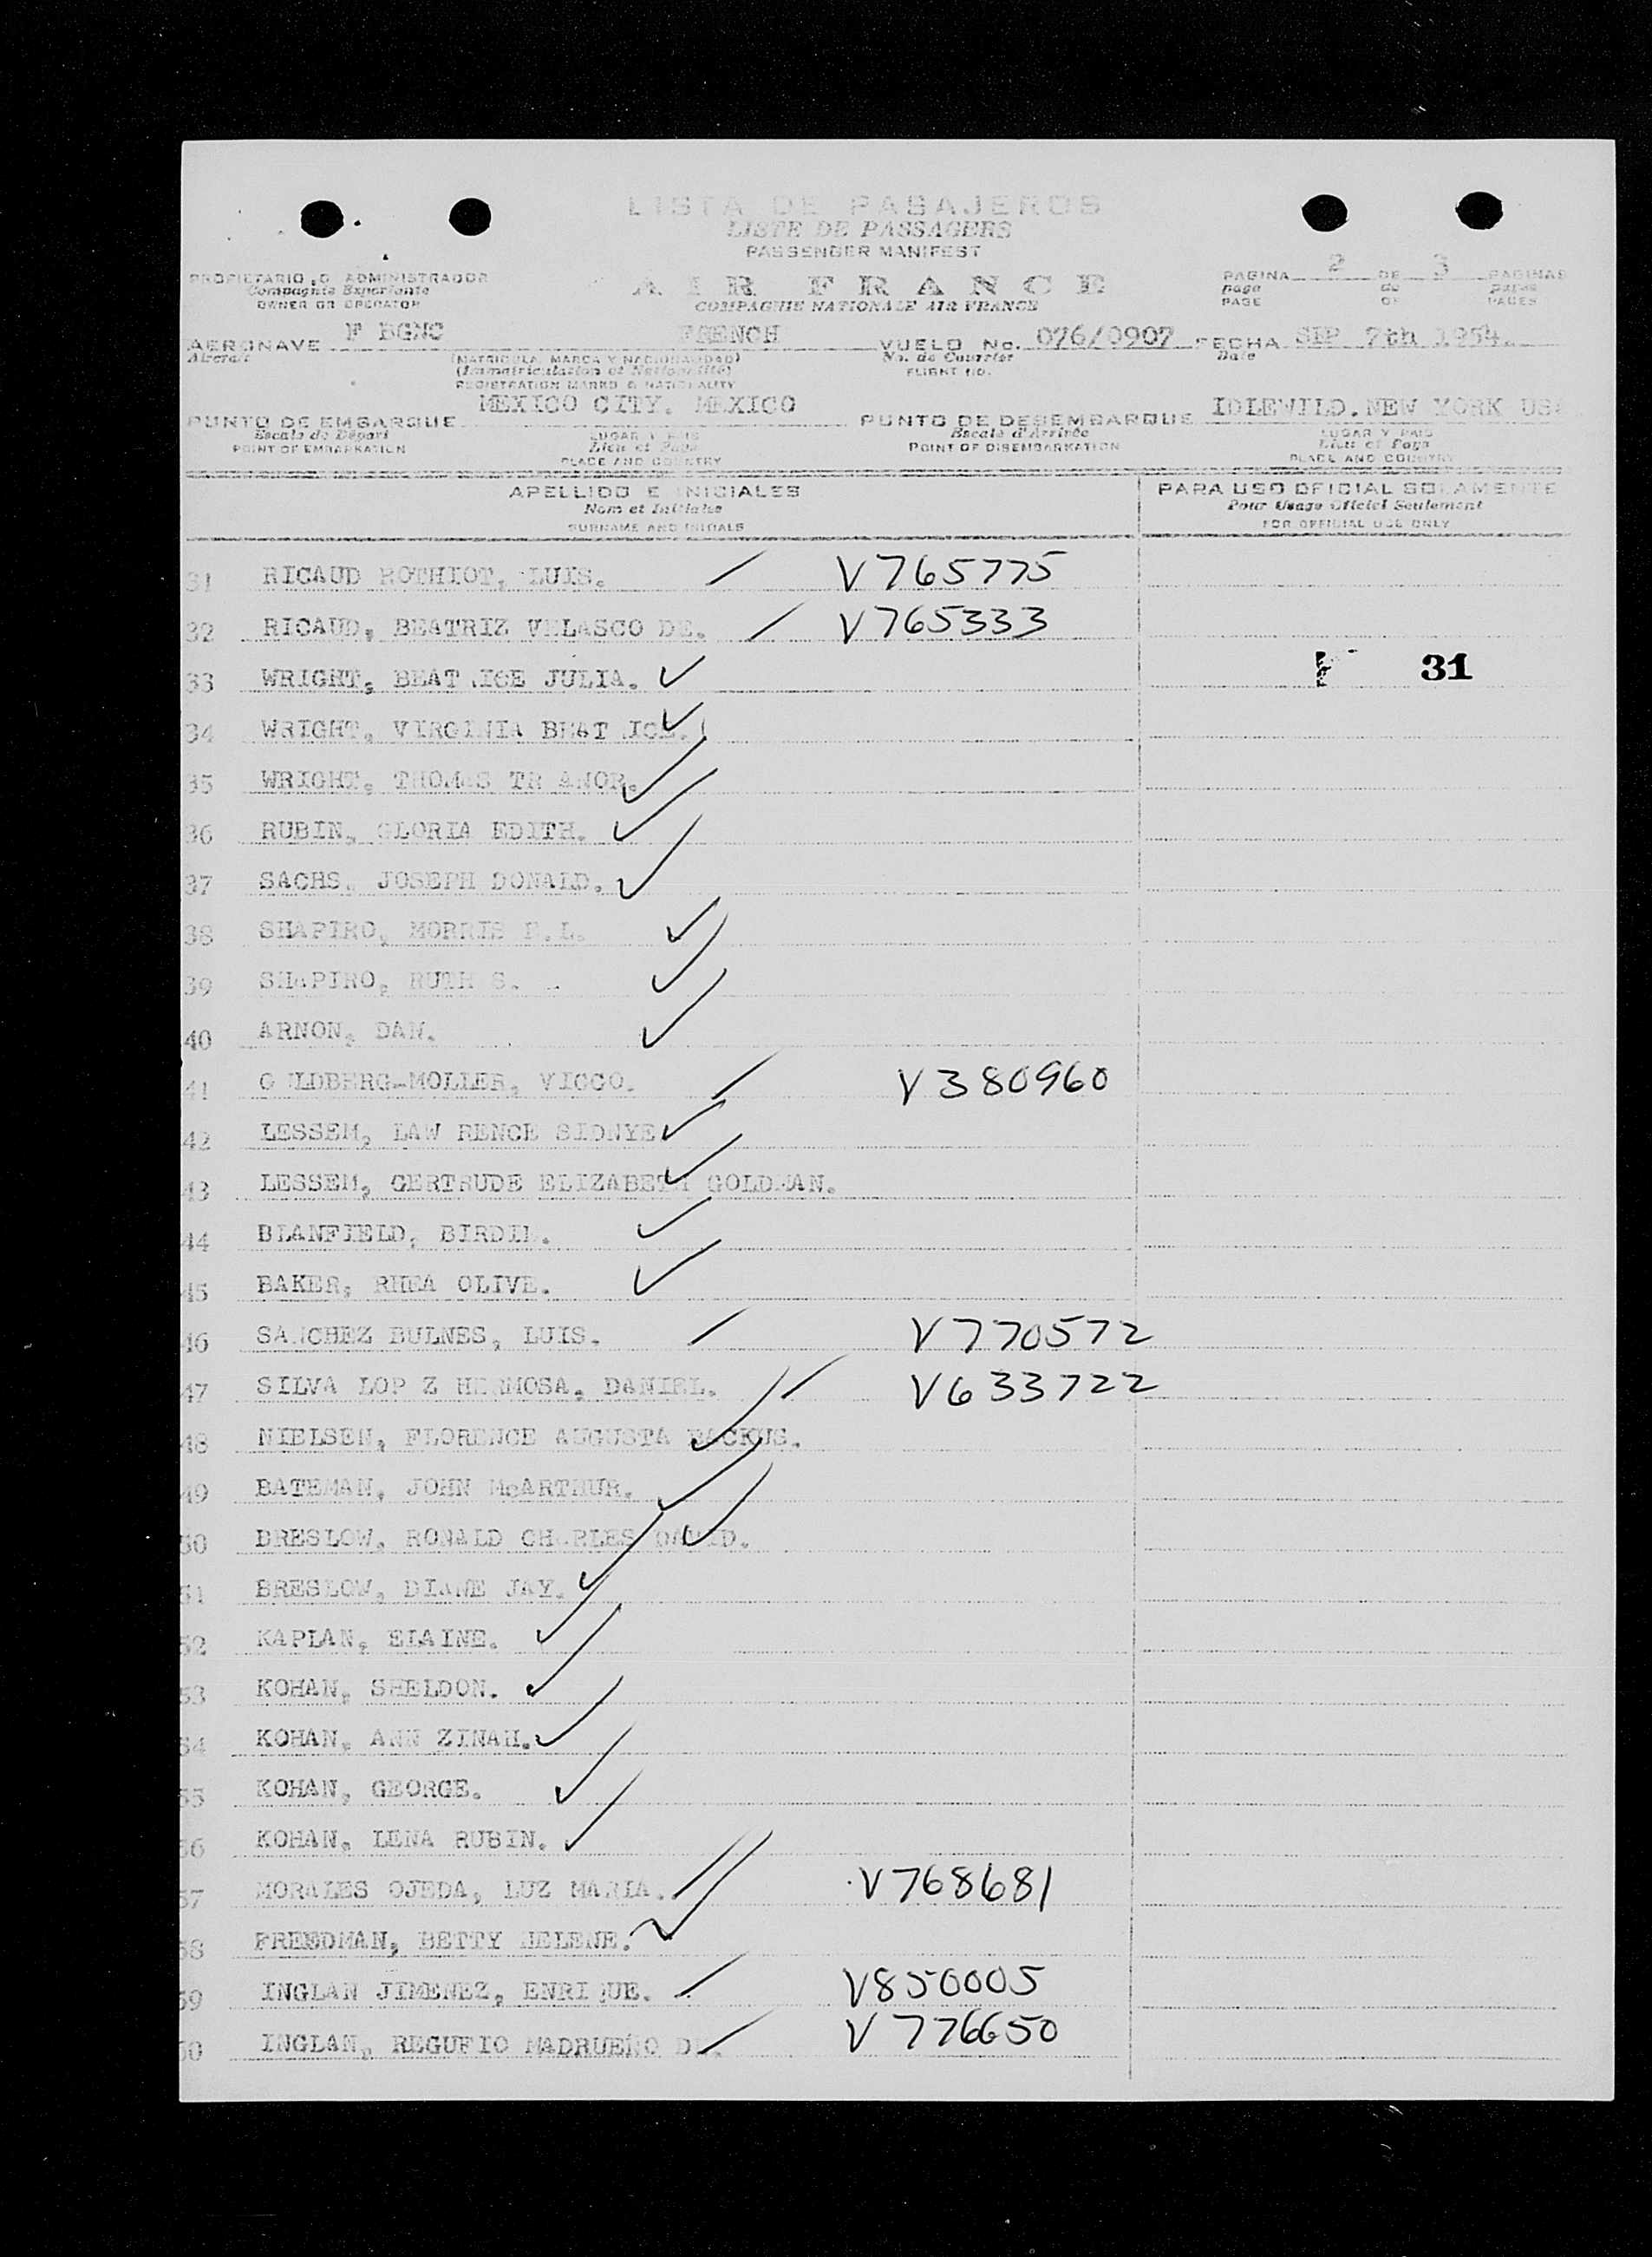 LISTA DE PASAJEROS
LISTE DE PASSAGERS
PASSENGER MANIFEST
PROPIETARIO O ADMINISTRADOR
Compagnie Exploitante
OWNER OR OPERATOR
AIR FRANCE
COMPAGNIE NATIONALE AIR FRANCE
PAGINA 2 DE 3 PAGINAS
page de pages
PAGE OF PAGES
AERONAVE F BGNC FRENCH VUELO No. 076/0907 FECHA SEP 7th 1954.
Aircraft (MATRICULA, MARCA Y NACIONALIDAD) No. de Courrier Date
(Immatriculation et Nationalité) FLIGHT NO.
REGISTRATION MARKS & NATIONALITY
PUNTO DE EMBARQUE MEXICO CITY. MEXICO PUNTO DE DESEMBARQUE IDLEWILD. NEW YORK USA
Escale de Départ LUGAR Y PAIS Escale d'Arrivée LUGAR Y PAIS
POINT OF EMBARKATION Lieu et Pays POINT OF DISEMBARKATION Lieu et Pays
PLACE AND COUNTRY PLACE AND COUNTRY
APELLIDO E INICIALES PARA USO OFICIAL SOLAMENTE
Nom et Initiales Pour Usage Officiel Seulement
SURNAME AND INITIALS FOR OFFICIAL USE ONLY
31 RICAUD ROTHIOT, LUIS. V765775
32 RICAUD, BEATRIZ VELASCO DE. V765333
33 WRIGHT, BEAT ICE JULIA. 31
34 WRIGHT, VIRGINIA BEAT ICE.
35 WRIGHT, THOMAS TR ANOR.
36 RUBIN, GLORIA EDITH.
37 SACHS. JOSEPH DONALD.
38 SHAPIRO, MORRIS F.L.
39 SHAPIRO, RUTH S.
40 ARNON, DAN.
41 G ULDBERG-MOLLER, VIGGO. V380960
42 LESSEM, LAW RENCE SIDNYE
43 LESSEM, GERTRUDE ELIZABETH GOLDMAN.
44 BLANFIELD, BIRDIE.
45 BAKER, RHEA OLIVE.
46 SANCHEZ BULNES, LUIS. V770572
47 SILVA LOP Z HERMOSA, DANIEL. V633722
48 NIELSEN, FLORENCE AUGUSTA BACKUS.
49 BATEMAN, JOHN McARTHUR.
50 BRESLOW, RONALD CHARLES DAVID.
51 BRESLOW, DIANE JAY.
52 KAPLAN, ELAINE.
53 KOHAN, SHELDON.
54 KOHAN, ANN ZINAH.
55 KOHAN, GEORGE.
56 KOHAN, LENA RUBIN.
57 MORALES OJEDA, LUZ MARIA. V768681
58 FREEDMAN, BETTY HELENE.
59 INGLAN JIMENEZ, ENRIQUE. V850005
60 INGLAN, REGUFIO MADRUEÑO DE. V776650